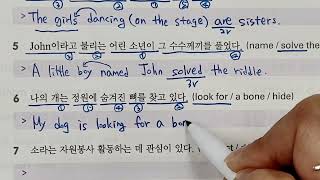 > The girls dancing (on the stage) are sisters.
2V
5 John이라고 불리는 어린 소년이 그 수수께끼를 풀었다. (name / solve the
> A little boy named John solved the riddle.
3V
6 나의 개는 정원에 숨겨진 뼈를 찾고 있다. (look for / a bone / hide)
> My dog is looking for a bon
7 소라는 자원봉사 활동하는 데 관심이 있다.